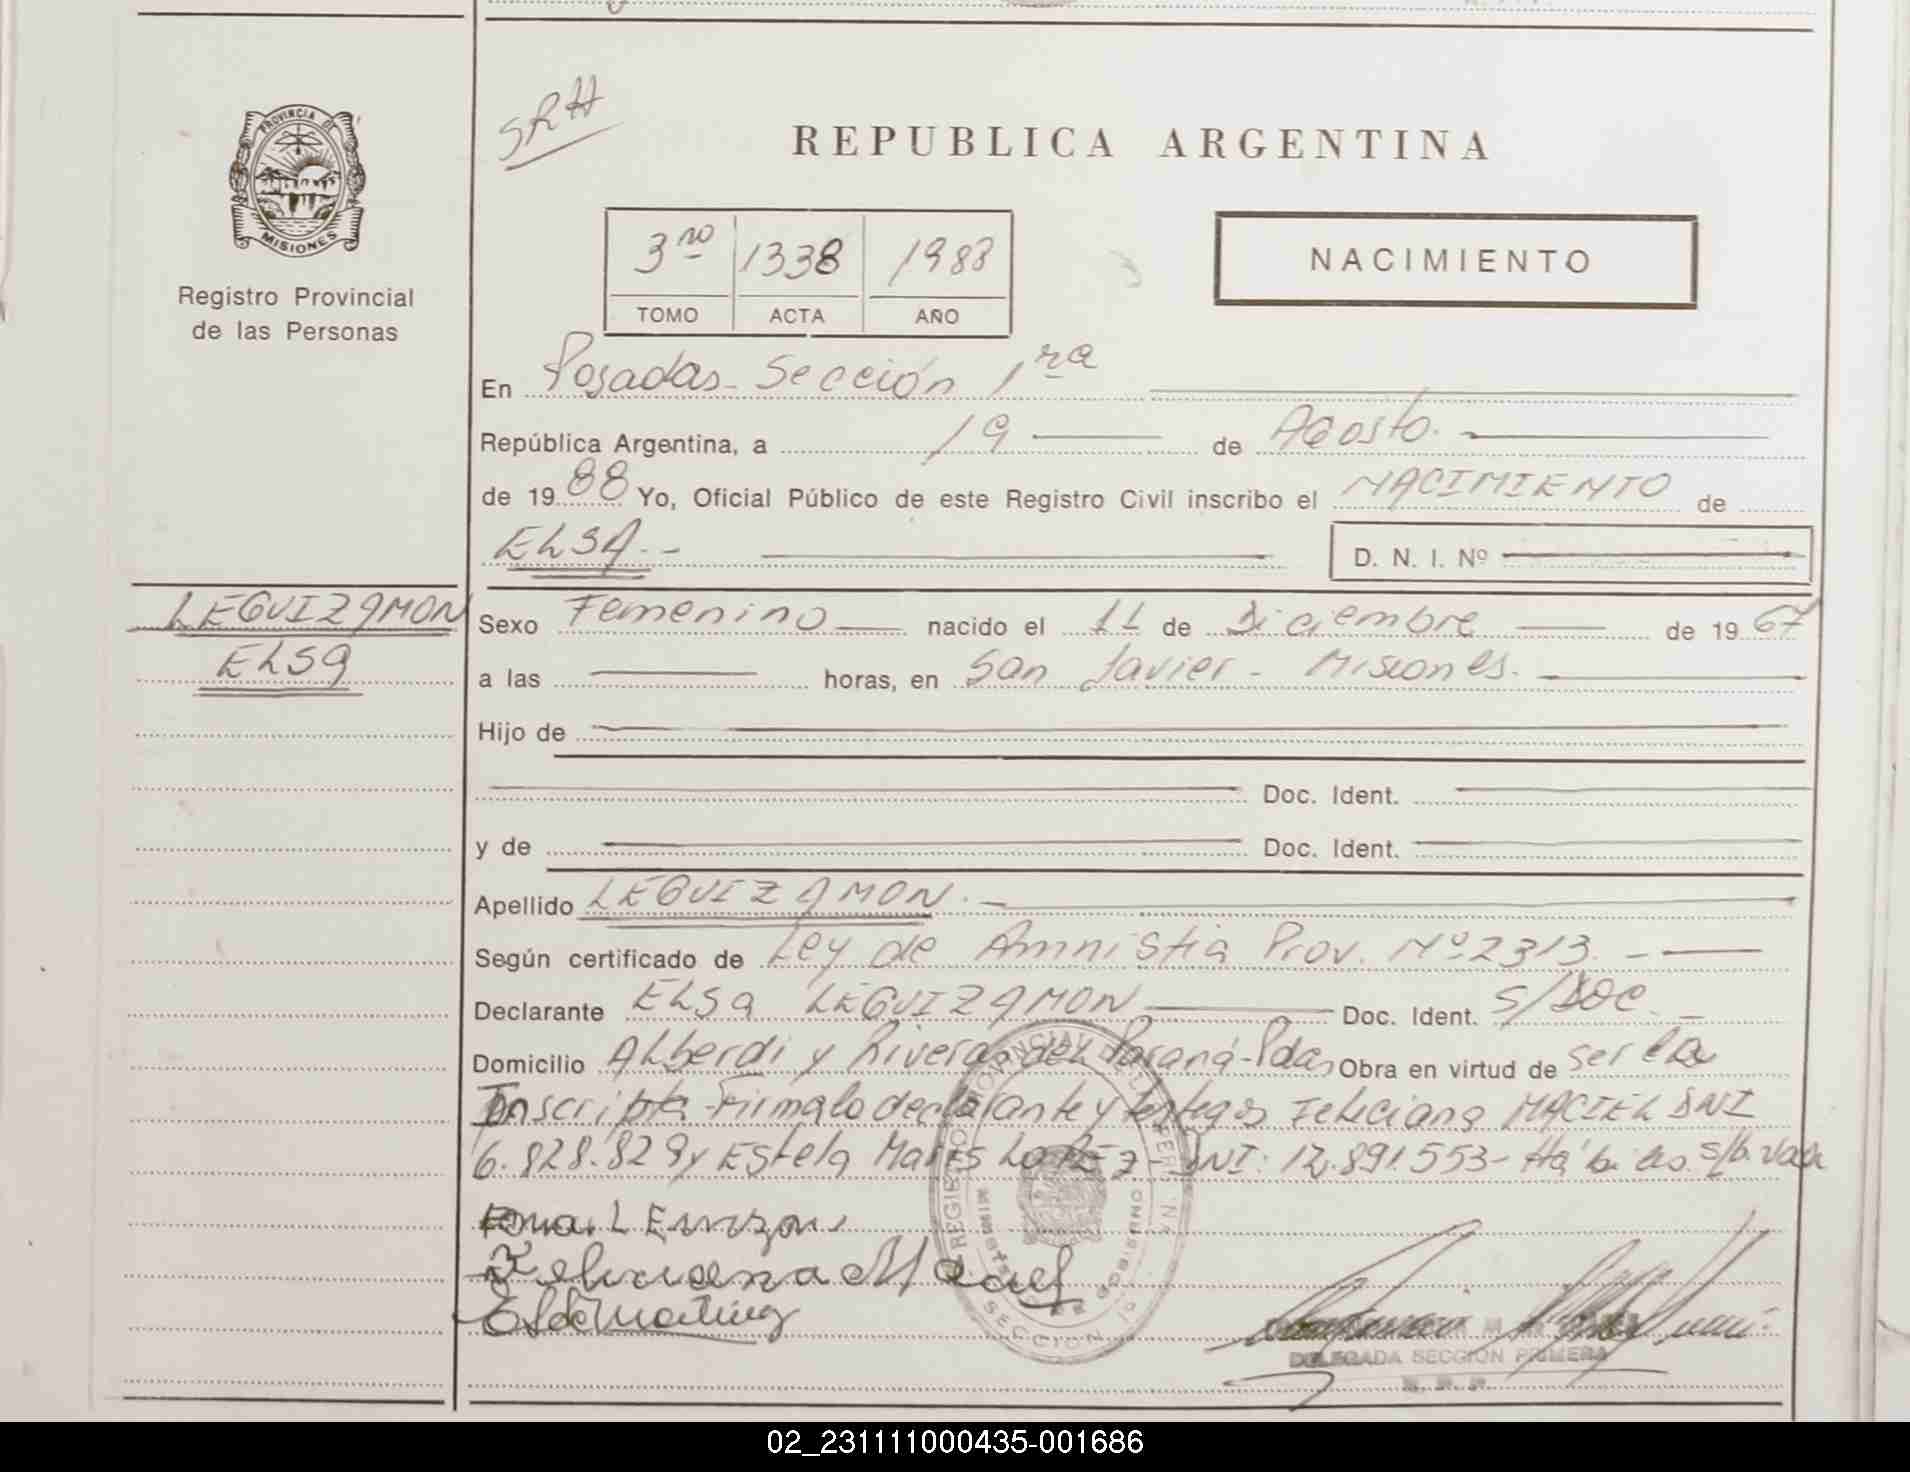 SRH
REPUBLICA ARGENTINA
PROVINCIA DE
MISIONES
Registro Provincial
de las Personas
3ro 1338 1988
TOMO ACTA AÑO
NACIMIENTO
En Posadas - Sección 1ra
República Argentina, a 19 de Agosto.
de 1988 Yo, Oficial Público de este Registro Civil inscribo el NACIMIENTO de
ELSA.-
D. N. I. Nº
LEGUIZAMON
ELSA
Sexo Femenino nacido el 11 de Diciembre de 1967
a las horas, en San Javier - Misiones.
Hijo de
Doc. Ident.
y de Doc. Ident.
Apellido LEGUIZAMON.-
Según certificado de Ley de Amnistia Prov. Nº 2313.-
Declarante ELSA LEGUIZAMON Doc. Ident. S/DOC.-
Domicilio Alberdi y Riveras del Paraná - Pdas Obra en virtud de ser la
Inscripta - Firma la declarante y testigos Feliciana MACIEL DNI
6.828.829 y Estela Maris LOPEZ - DNI: 12.891.553 - Hábiles
Feliciana Maciel
DELEGADA SECCION PRIMERA
R. P. P.
REGISTRO PROVINCIAL DE LAS PERSONAS
SECCION 1a
02_231111000435-001686